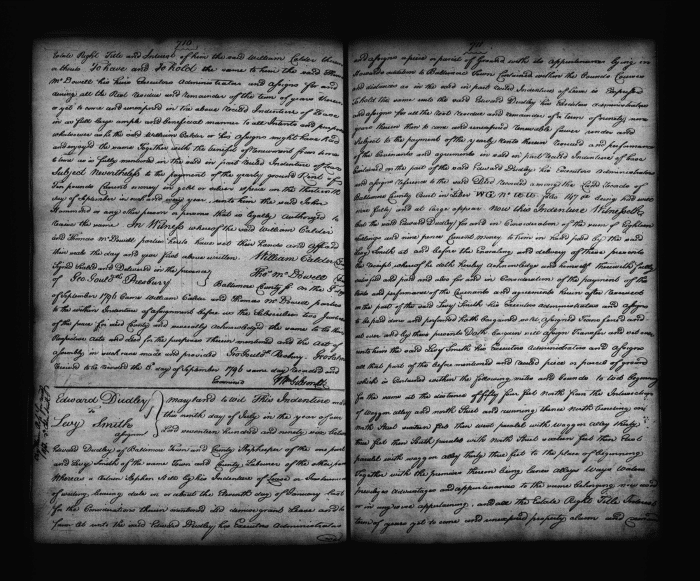 710
Estate Right Title and Interest of him the said William Calder
To have and to hold the same to him the said
McDowell his heirs Executors Administrators and assigns for and
during all the Rest Residue and Remainder of the term of years
yet to come and unexpired in the above Recited Indenture of Lease
in as full large ample and beneficial manner to all Intents and purposes
whatsoever as he the said William Calder or his assigns might have had
and enjoyed the same Together with the benefit of Renewment from time
to time as is fully mentioned in the said in part Recited Indenture of Lease
Subject Nevertheless to the payment of the yearly ground Rent of
Ten pounds Current money in gold or silver upon the
day of September in each and every year unto the said John
or any other person or persons that is legally Authorized to
receive the same In Witness whereof the said William Calder
and Thomas McDowell parties hereto have set their hands and affixed
their seals the day and year first above written William Calder
Signed Sealed and Delivered in the presence Thos McDowell
of Geo Gould Presbury
Baltimore County ss On the
of September 1796 Came William Calder and Thomas McDowell parties
to the within Indenture of assignment before us the Subscribers two Justices
of the peace for said County and severally acknowledged the same to be their
Respective Acts and deed for the purposes therein mentioned and the Act of
assembly in such case made and provided Geo Gould Presbury
Received to be recorded the 8 day of September 1796 same day Recorded and
Examined
Edward Dudley
to
Levy Smith
assignment
Maryland to wit This Indenture made
the ninth day of July in the year of our
Lord seventeen hundred and ninety
Edward Dudley of Baltimore Town and County Shopkeeper of the one part
and Levy Smith of the same Town and County Labourer of the other part
Whereas a certain Stephen Hill by his Indenture of Lease or Instrument
of writing bearing date on or about the Eleventh day of January last
for the Considerations therein mentioned did demise grant Lease and to
farm let unto the said Edward Dudley his Executors Administrators
and assigns a piece or parcel of Ground with its appurtenances lying in
Howards addition to Baltimore Town Contained within the bounds Courses
and distances as in the said in part Recited Indenture of Lease is Expressed
To hold the same unto the said Edward Dudley his Executors Administrators
and assigns for all the Rest Residue and Remainder of a term of ninety nine
years thereon then to come and unexpired renewable forever under and
Subject to the payment of the yearly Rents therein Reserved and performance
of the Covenants and agreements in said in part Recited Indenture of Lease
Contained on the part of the said Edward Dudley his Executors Administrators
and assigns Reference to the said Deed Recorded among the Land Records of
Baltimore County Court in Liber WG No folio being had will
more fully and at large appear Now this Indenture Witnesseth
that the said Edward Dudley for and in Consideration of the sum of Eighteen
shillings and nine pence Current money to him in hand paid by the said
Levy Smith at and before the Ensealing and delivery of these presents
the receipt whereof he doth hereby acknowledge and himself therewith fully
satisfied and paid and also for and in Consideration of the payment of the
Rents and performance of the Covenants and agreements herein after
on the part of the said Levy Smith his Executors Administrators and assigns
to be paid done and performed Hath Bargained sold assigned Transferred and
set over and by these presents Doth Bargain sell assign Transfer and set over
unto him the said Levy Smith his Executors Administrators and assigns
all that part of the before mentioned and Recited piece or parcel of ground
which is Contained within the following metes and bounds to wit Beginning
for the same at the distance of fifty five feet North from the Intersection
of Waggon alley and North Street and running thence North bounding on
North Street sixteen feet then west parallel with Waggon alley thirty
three feet then South parallel with North Street sixteen feet then East
parallel with waggon alley thirty three feet to the place of Beginning
Together with the premises thereon being lanes alleys Ways Waters
privileges Advantages and appurtenances to the same belonging
or in any wise appertaining and all the Estate Right Title Interest
term of years yet to come and unexpired property claim and